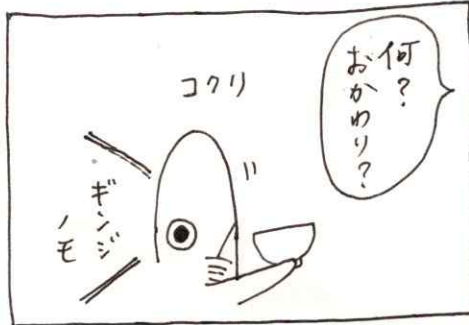 何?
おかわり?
コクリ
ギンジ
ノモ